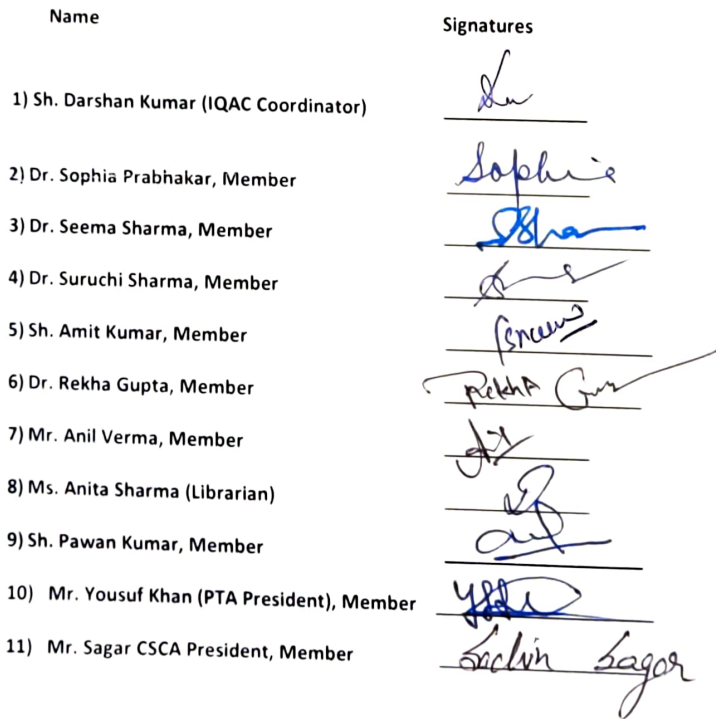 Name Signatures
1) Sh. Darshan Kumar (IQAC Coordinator)
2) Dr. Sophia Prabhakar, Member Sophia
3) Dr. Seema Sharma, Member
4) Dr. Suruchi Sharma, Member
5) Sh. Amit Kumar, Member
6) Dr. Rekha Gupta, Member Rekha
7) Mr. Anil Verma, Member
8) Ms. Anita Sharma (Librarian)
9) Sh. Pawan Kumar, Member
10) Mr. Yousuf Khan (PTA President), Member
11) Mr. Sagar CSCA President, Member Sachin Sagar